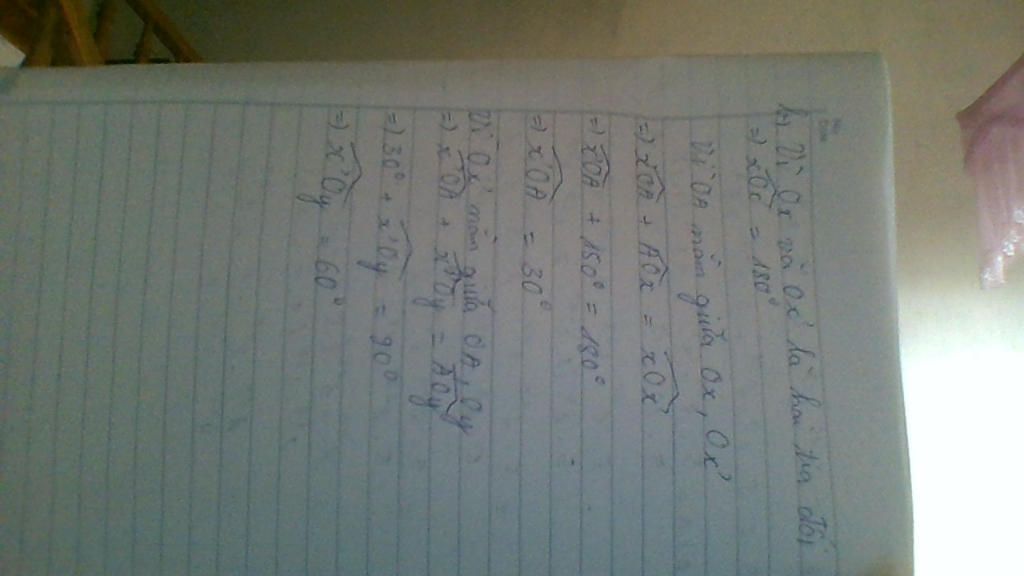 b, Vì Ox và Ox' là hai tia đối
=) xOx' = 180°
Vì OA nằm giữa Ox, Ox'
=) x'OA + AOx = xOx'
=) x'OA + 150° = 180°
=) x'OA = 30°
Vì Ox' nằm giữa OA, Oy
=) x'OA + x'Oy = AOy
=) 30° + x'Oy = 90°
=) x'Oy = 60°